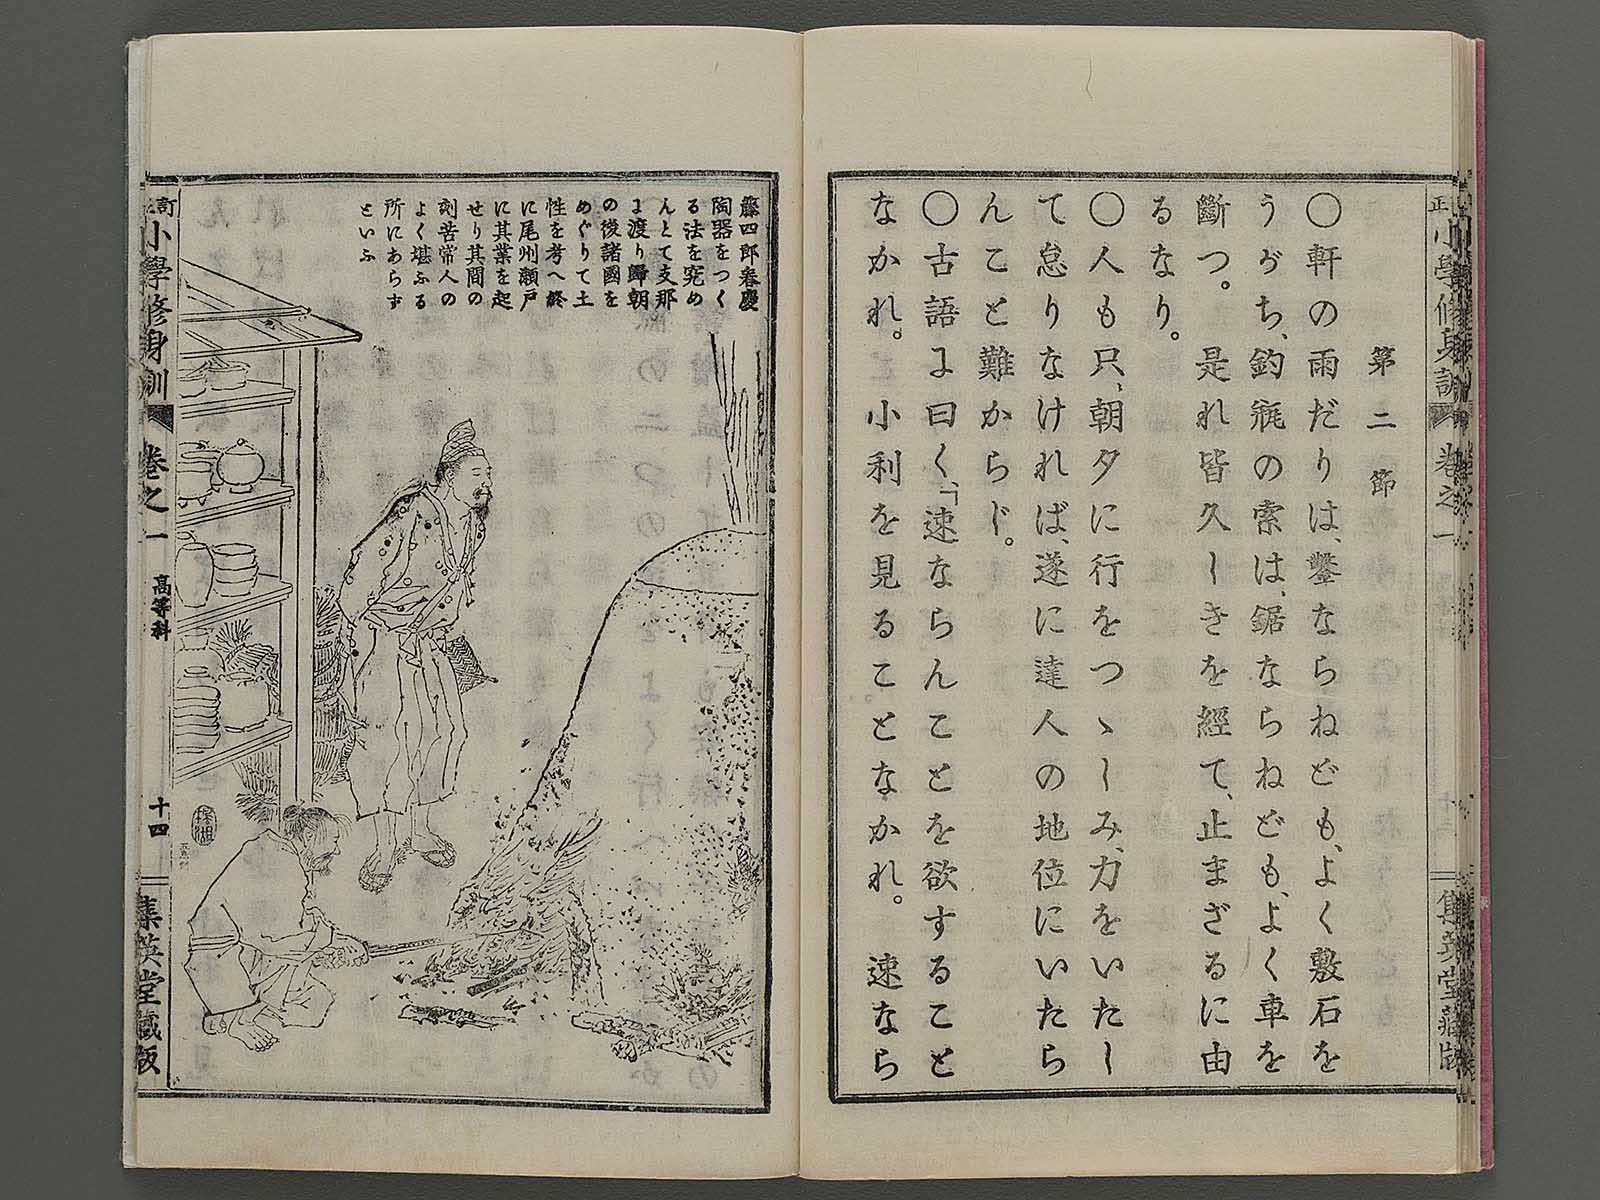 第二節
〇軒の雨だりは、鑿ならねども、よく敷石を
うがち、釣瓶の索は、鋸ならねども、よく車を
斷つ。是れ皆久しきを經て、止まざるに由
るなり。
〇人も只、朝夕に行をつゝしみ、力をいたし
て怠りなければ、遂に達人の地位にいたら
んこと難からじ。
〇古語に曰く、「速ならんことを欲すること
なかれ。小利を見ることなかれ。速なら
正 小學修身訓 卷之一
集英堂藏版
藤四郎春慶
陶器をつく
る法を究め
んとて支那
に渡り歸朝
の後諸國を
めぐりて土
性を考へ終
に尾州瀬戸
に其業を起
せり其間の
刻苦常人の
よく堪ふる
所にあらず
といふ
訂正 小學修身訓 卷之一 高等科 十四 集英堂藏版